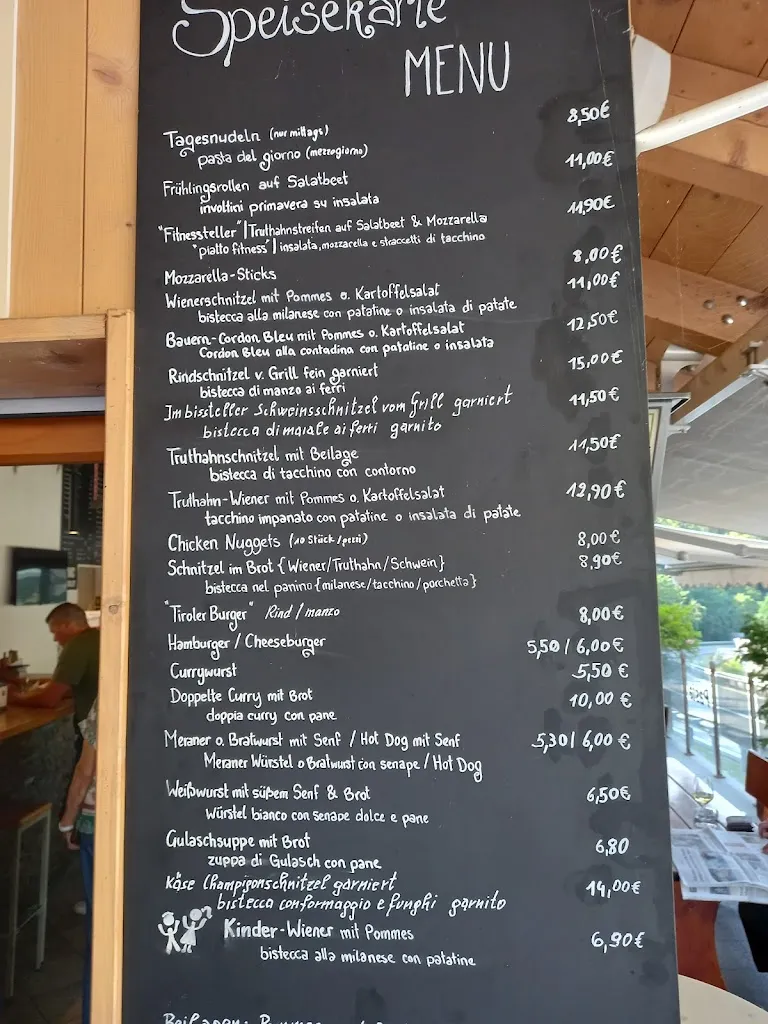 Speisekarte
MENU
Tagesnudeln (nur mittags) 8,50€
pasta del giorno (mezzogiorno)
Frühlingsrollen auf Salatbeet 11,00€
involtini primavera su insalata
"Fitnessteller" | Truthahnstreifen auf Salatbeet & Mozzarella 11,90€
"piatto fitness" | insalata, mozzarella e straccetti di tacchino
Mozzarella-Sticks 8,00€
Wienerschnitzel mit Pommes o. Kartoffelsalat 11,00€
bistecca alla milanese con patatine o insalata di patate
Bauern-Cordon Bleu mit Pommes o. Kartoffelsalat 12,50€
Cordon Bleu alla contadina con patatine o insalata
Rindschnitzel v. Grill fein garniert 15,00€
bistecca di manzo ai ferri
Imbissteller Schweinsschnitzel vom Grill garniert 11,50€
bistecca di maiale ai ferri garnito
Truthahnschnitzel mit Beilage 11,50€
bistecca di tacchino con contorno
Truthahn-Wiener mit Pommes o. Kartoffelsalat 12,90€
tacchino impanato con patatine o insalata di patate
Chicken Nuggets (10 Stück/pezzi) 8,00€
Schnitzel im Brot {Wiener/Truthahn/Schwein} 8,90€
bistecca nel panino {milanese/tacchino/porchetta}
"Tiroler Burger" Rind / manzo 8,00€
Hamburger / Cheeseburger 5,50 / 6,00€
Currywurst 5,50€
Doppelte Curry mit Brot 10,00€
doppia curry con pane
Meraner o. Bratwurst mit Senf / Hot Dog mit Senf 5,30 / 6,00€
Meraner Würstel o Bratwurst con senape / Hot Dog
Weißwurst mit süßem Senf & Brot 6,50€
Würstel bianco con senape dolce e pane
Gulaschsuppe mit Brot 6,80
zuppa di Gulasch con pane
Käse Champigonschnitzel garniert 14,00€
bistecca con formaggio e funghi garnito
Kinder-Wiener mit Pommes 6,90€
bistecca alla milanese con patatine